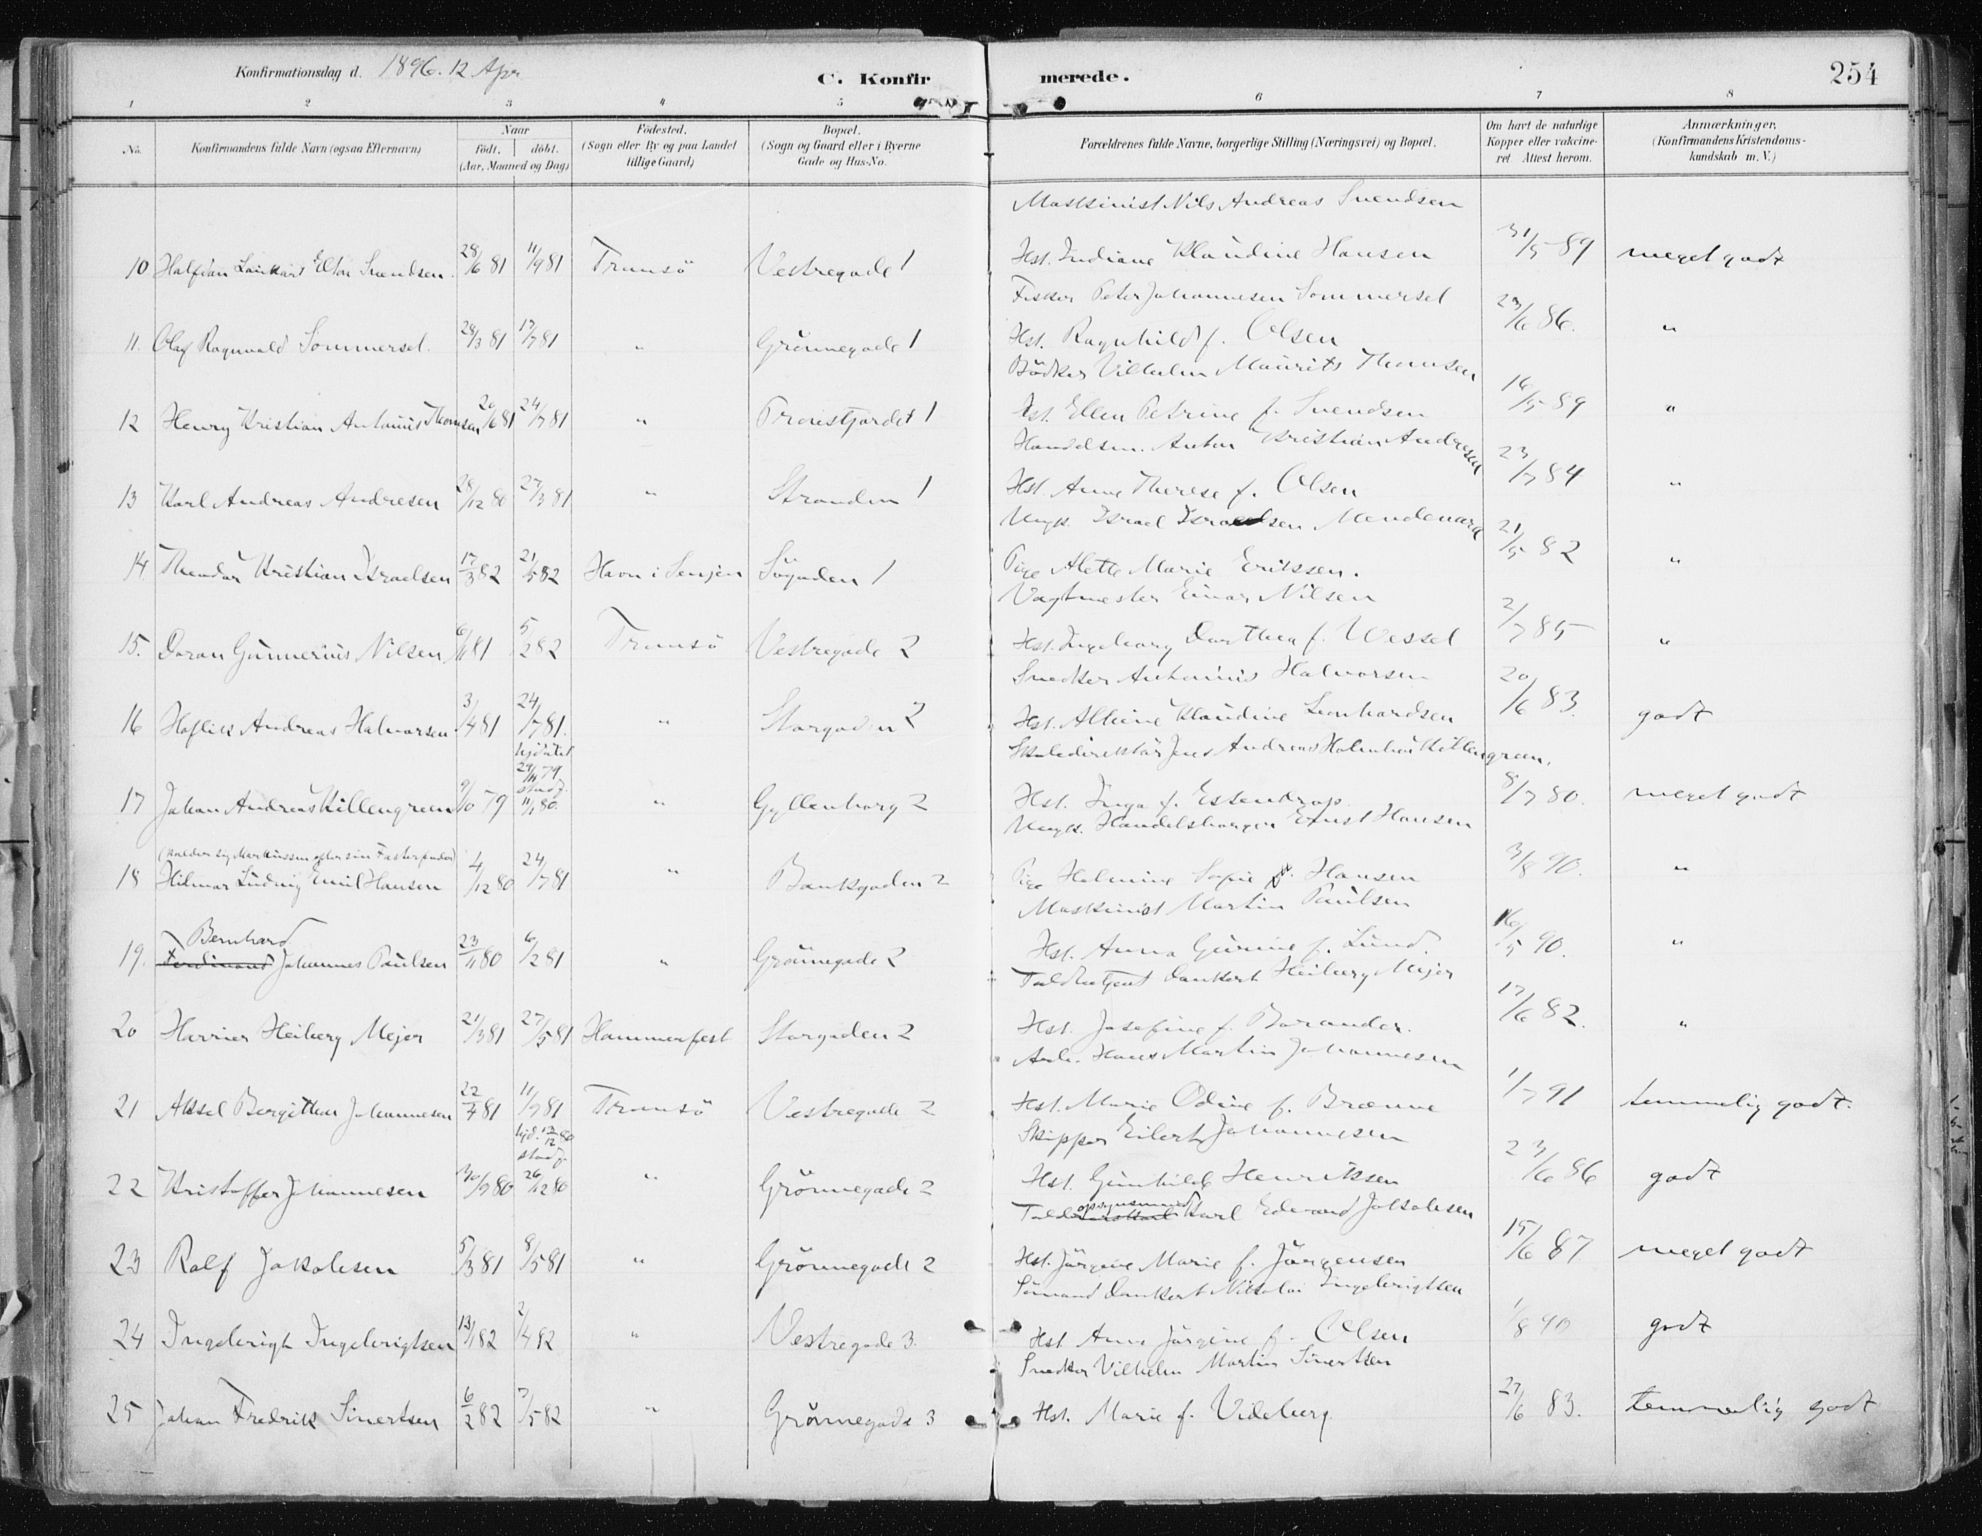 Konfirmationsdag d. 1896. 12 Apr. C. Konfirmerede. 254
1 2 3 4 5 6 7 8
No. Konfirmandens fulde Navn (ogsaa Efternavn) Naar født. døbt. (Aar, Maaned og Dag) Fødested. (Sogn eller By og paa Landet tillige Gaard) Bopæl. (Sogn og Gaard eller i Byerne Gade og Hus-No. Forældrenes fulde Navne, borgerlige Stilling (Næringsvei) og Bopæl. Om havt de naturlige Kopper eller vakcineret. Attest herom. Anmærkninger. (Konfirmandens Kristendomskundskab m. V.)
Maskinist Nils Andreas Svendsen
10 Halfdan Svendsen 28/6 81 11/9 81 Tromsö Vestregade 1 Hst. Indiane Klaudine Hansen 31/5 89 meget godt
Fisker Peter Johannesen Sommersel
11. Olaf Ragnvald Sommersel. 28/3 81 17/7 81 " Grönnegade 1 Hst. Ragnhild f. Olsen 23/6 86. "
Bödker Vilhelm Maurits Thomsen
12 Henry Kristian Antonius Thomsen 20/6 81 24/7 81 " 1 Hst. Ellen Petrine f. Svendsen 16/5 89 "
Handelsm. Anton Kristian Andresen
13 Karl Andreas Andresen 28/12 80 27/3 81 " Stranden 1 Hst. Anne Therese f. Olsen 23/7 84 "
Ungk. Israel Israelsen
14 Theodor Kristian Israelsen 17/3 82 21/5 82 Havn i Senjen Sögaden 1 Pige Alette Marie Erikssen. 21/5 82 "
Vagtmester Einar Nilsen
15. Gunnerius Nilsen 81 5/2 82 Tromsö Vestregade 2 Hst. Ingeborg Dorthea f. Wessel 2/7 85 "
Snedker Antonius Halvorsen
16 Andreas Halvorsen 3/4 81 24/7 81. " Storgaden 2 Hst. Klaudine Leonhardsen 20/6 83. godt
hjdøbt 29/11 79
Skoledirektör Jens Andreas Killengreen.
17 Johan Andreas Killengreen 9/10 79 stadf. 11/1 80. " Gyllenborg 2 Hst. Inga f. Essendrop 8/7 80. meget godt
Ungk. Handelsborger Ernst Hansen
(kalder sig Markussen efter sin Fosterfader)
18 Hilmar Ludvig Emil Hansen 4/12 80 24/7 81 " Bankgaden 2 Pige Halmine Sofie Hansen 3/8 90. "
Maskinist Martin Paulsen
Bernhard
19. Ferdinand Johannes Paulsen 23/11 80 6/2 81 " Grönnegade 2 Hst. Anna Gurine f. Lund. 16/5 90. "
Dankert Heiberg Mejer
20 Heiberg Mejer 21/3 81 27/5 81 Hammerfest Storgaden 2 Hst. Josefine f. 17/6 82. "
Arb. Hans Martin Johannesen
21 Aksel Bergithon Johannesen 22/4 81 11/7 81 Tromsö Vestregade 2 Hst. Marie Odine f. Brænne 1/7 91 temmelig godt.
hjd. 12/12 80 stadf.
Skipper Eilert Johannesen
22 Kristoffer Johannesen 30/9 80 26/12 80 " Grönnegade 2 Hst. Gunhild Henriksen 23/6 86 godt
opsynsmand Karl Edvard Jakobsen
23 Rolf Jakobsen 5/3 81 8/5 81 " Grönnegade 2 Hst. Jörgine Marie f. Jörgensen 15/6 87 meget godt
Sömand Dankert Nikolai Ingebrigtsen
24 Ingebrigt Ingebrigtsen 13/1 82 2/4 82 " Vestregade 3. Hst. Anna Jörgine f. Olsen 1/8 90 godt
Snedker Vilhelm Martin Sivertsen
25 Johan Fredrik Sivertsen 6/2 82 7/5 82 " Grönnegade 3 Hst. Marie f. Videberg. 27/6 83. temmelig godt